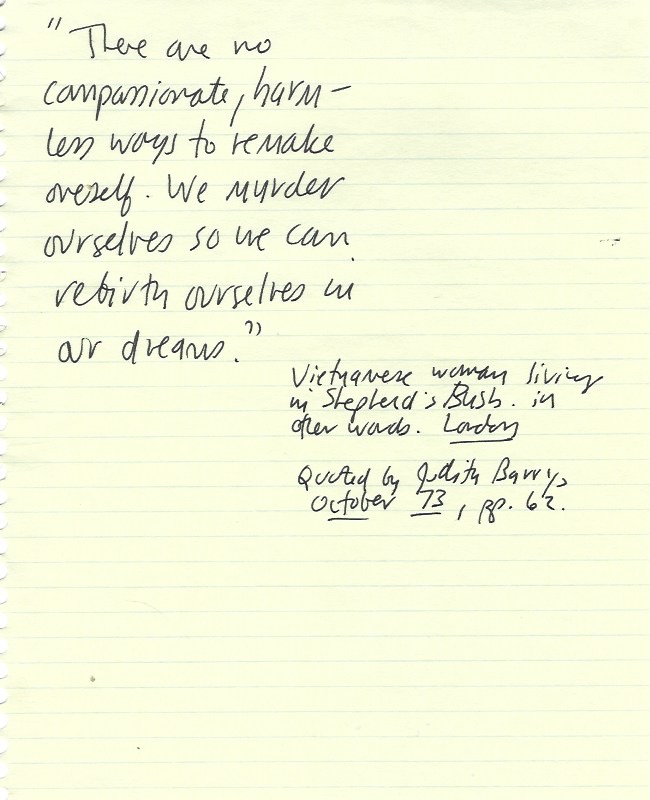 "There are no
compassionate, harm-
less ways to remake
oneself. We murder
ourselves so we can
rebirth ourselves in
our dreams."
Vietnamese woman living
in Shepherd's Bush. in
other words. London
Quoted by Judith Barry,
October 73, pp. 62.